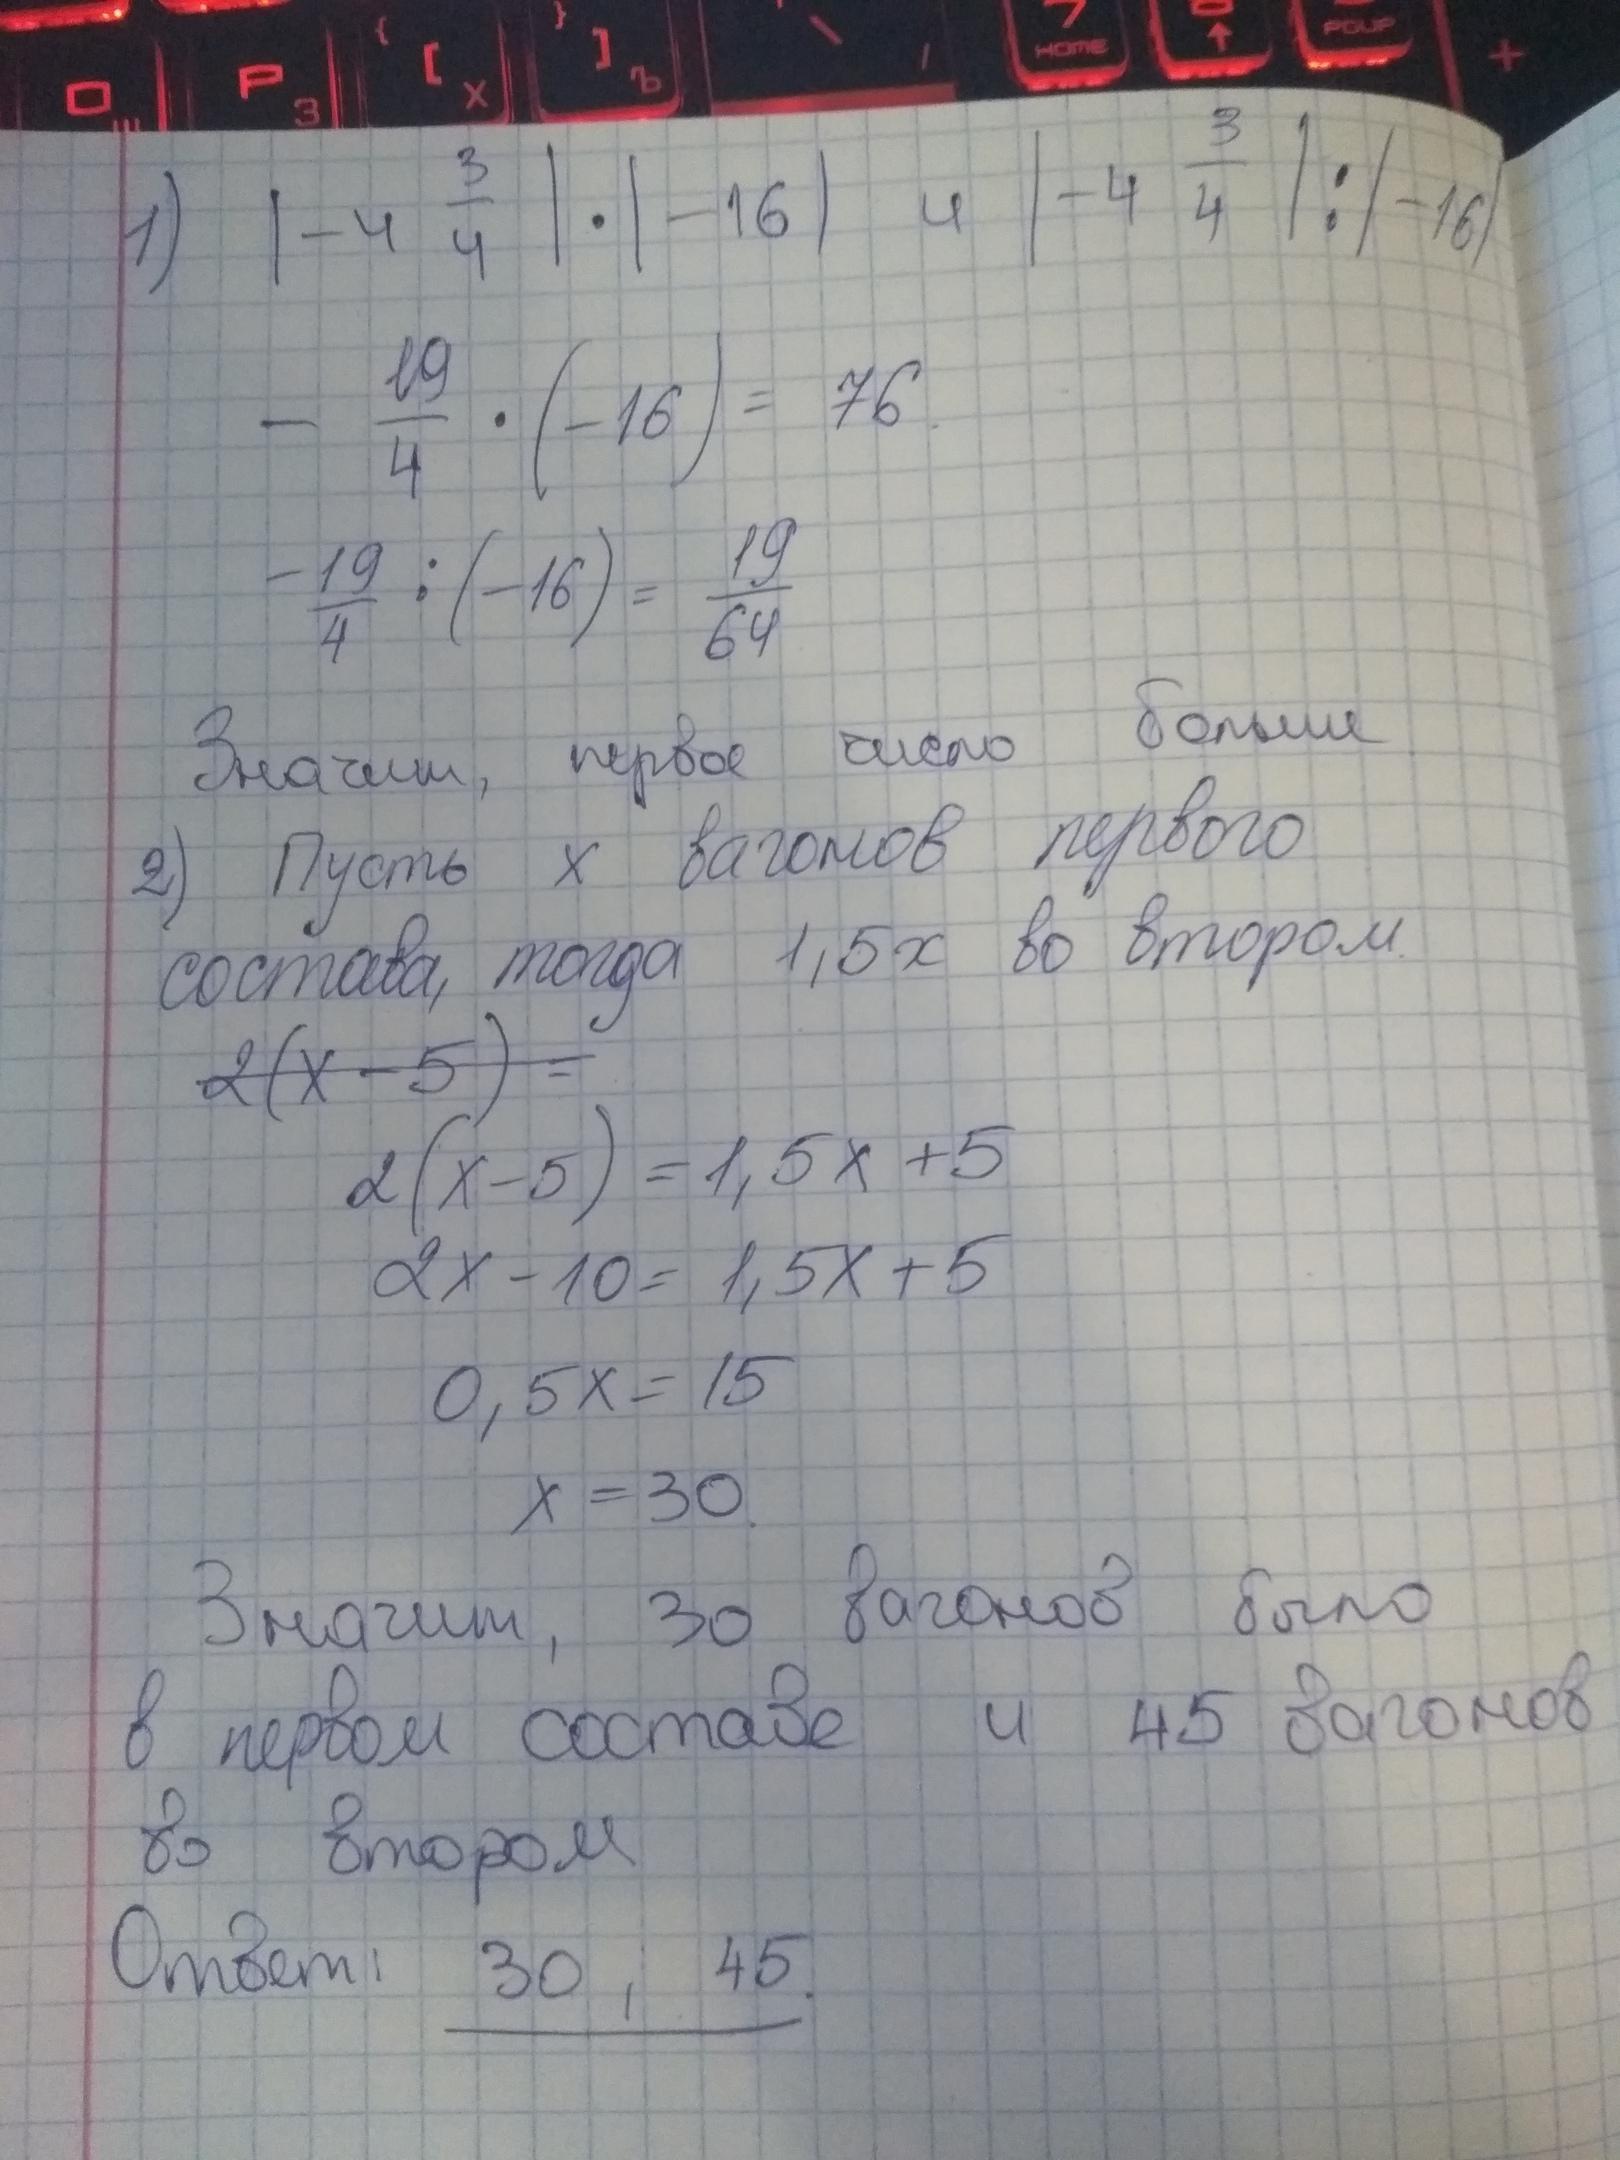 O Щ P З { [ Х } ] Ъ \ / 7 HOME 8 ↑ PGUP +
1) |-4 3/4| · |-16| и |-4 3/4| : |-16|
- 19/4 · (-16) = 76.
-19/4 : (-16) = 19/64
Значит, первое число больше
2) Пусть х вагонов первого
состава, тогда 1,5х во втором.
2(х-5) =
2(х-5) = 1,5х +5
2х - 10 = 1,5х + 5
0,5х = 15
х = 30.
Значит, 30 вагонов было
в первом составе и 45 вагонов
во втором
Ответ: 30, 45.